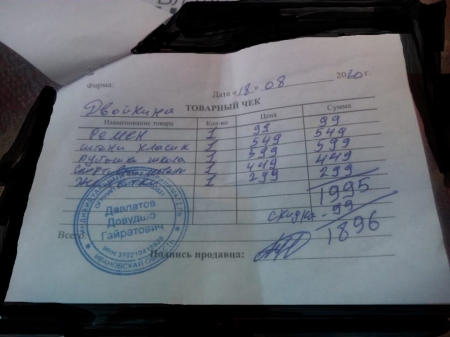 Фирма:
Дата «18» 08 2020г.
Двойкина
ТОВАРНЫЙ ЧЕК
Наименование товара Кол-во Цена Сумма
Ремен 1 99 99
штани класик 1 549 549
рубашка школа 1 599 599
1 449 449
Жилетка 1 299 299
1995
скидка - 99
Всего: 1896
Подпись продавца:
Давлатов
Довудшо
Гайратович
ИВАНОВСКАЯ ОБЛАСТЬ